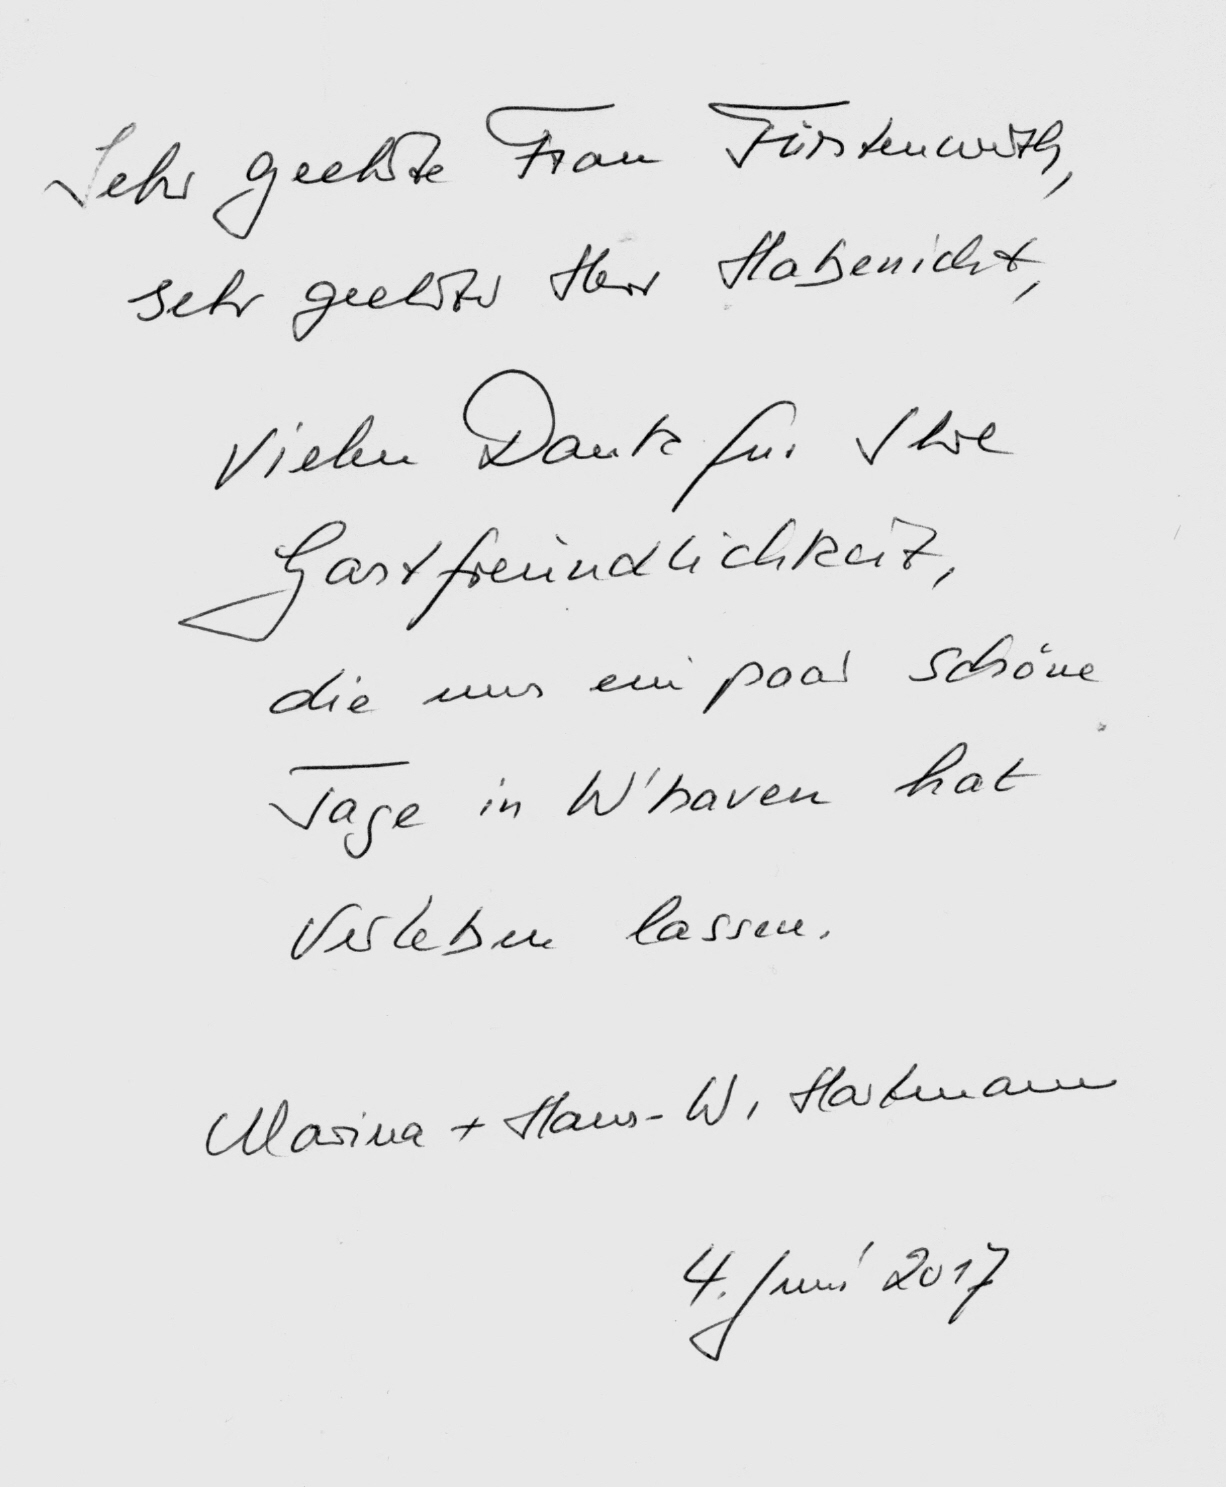 Sehr geehrte Frau Fürstenwerth,
sehr geehrter Herr Habenicht,
Vielen Dank für Ihre
Gastfreundlichkeit,
die uns ein paar schöne
Tage in W'haven hat
verleben lassen.
Marina + Hans-W. Hartmann
4. Juni 2017